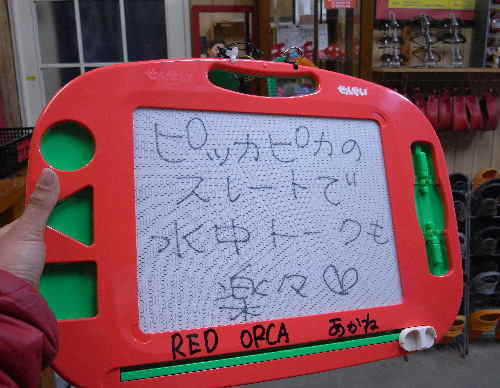 せんせい
せんせい
ピッカピカの
スレートで
水中トークも
楽々♡
RED ORCA あかね